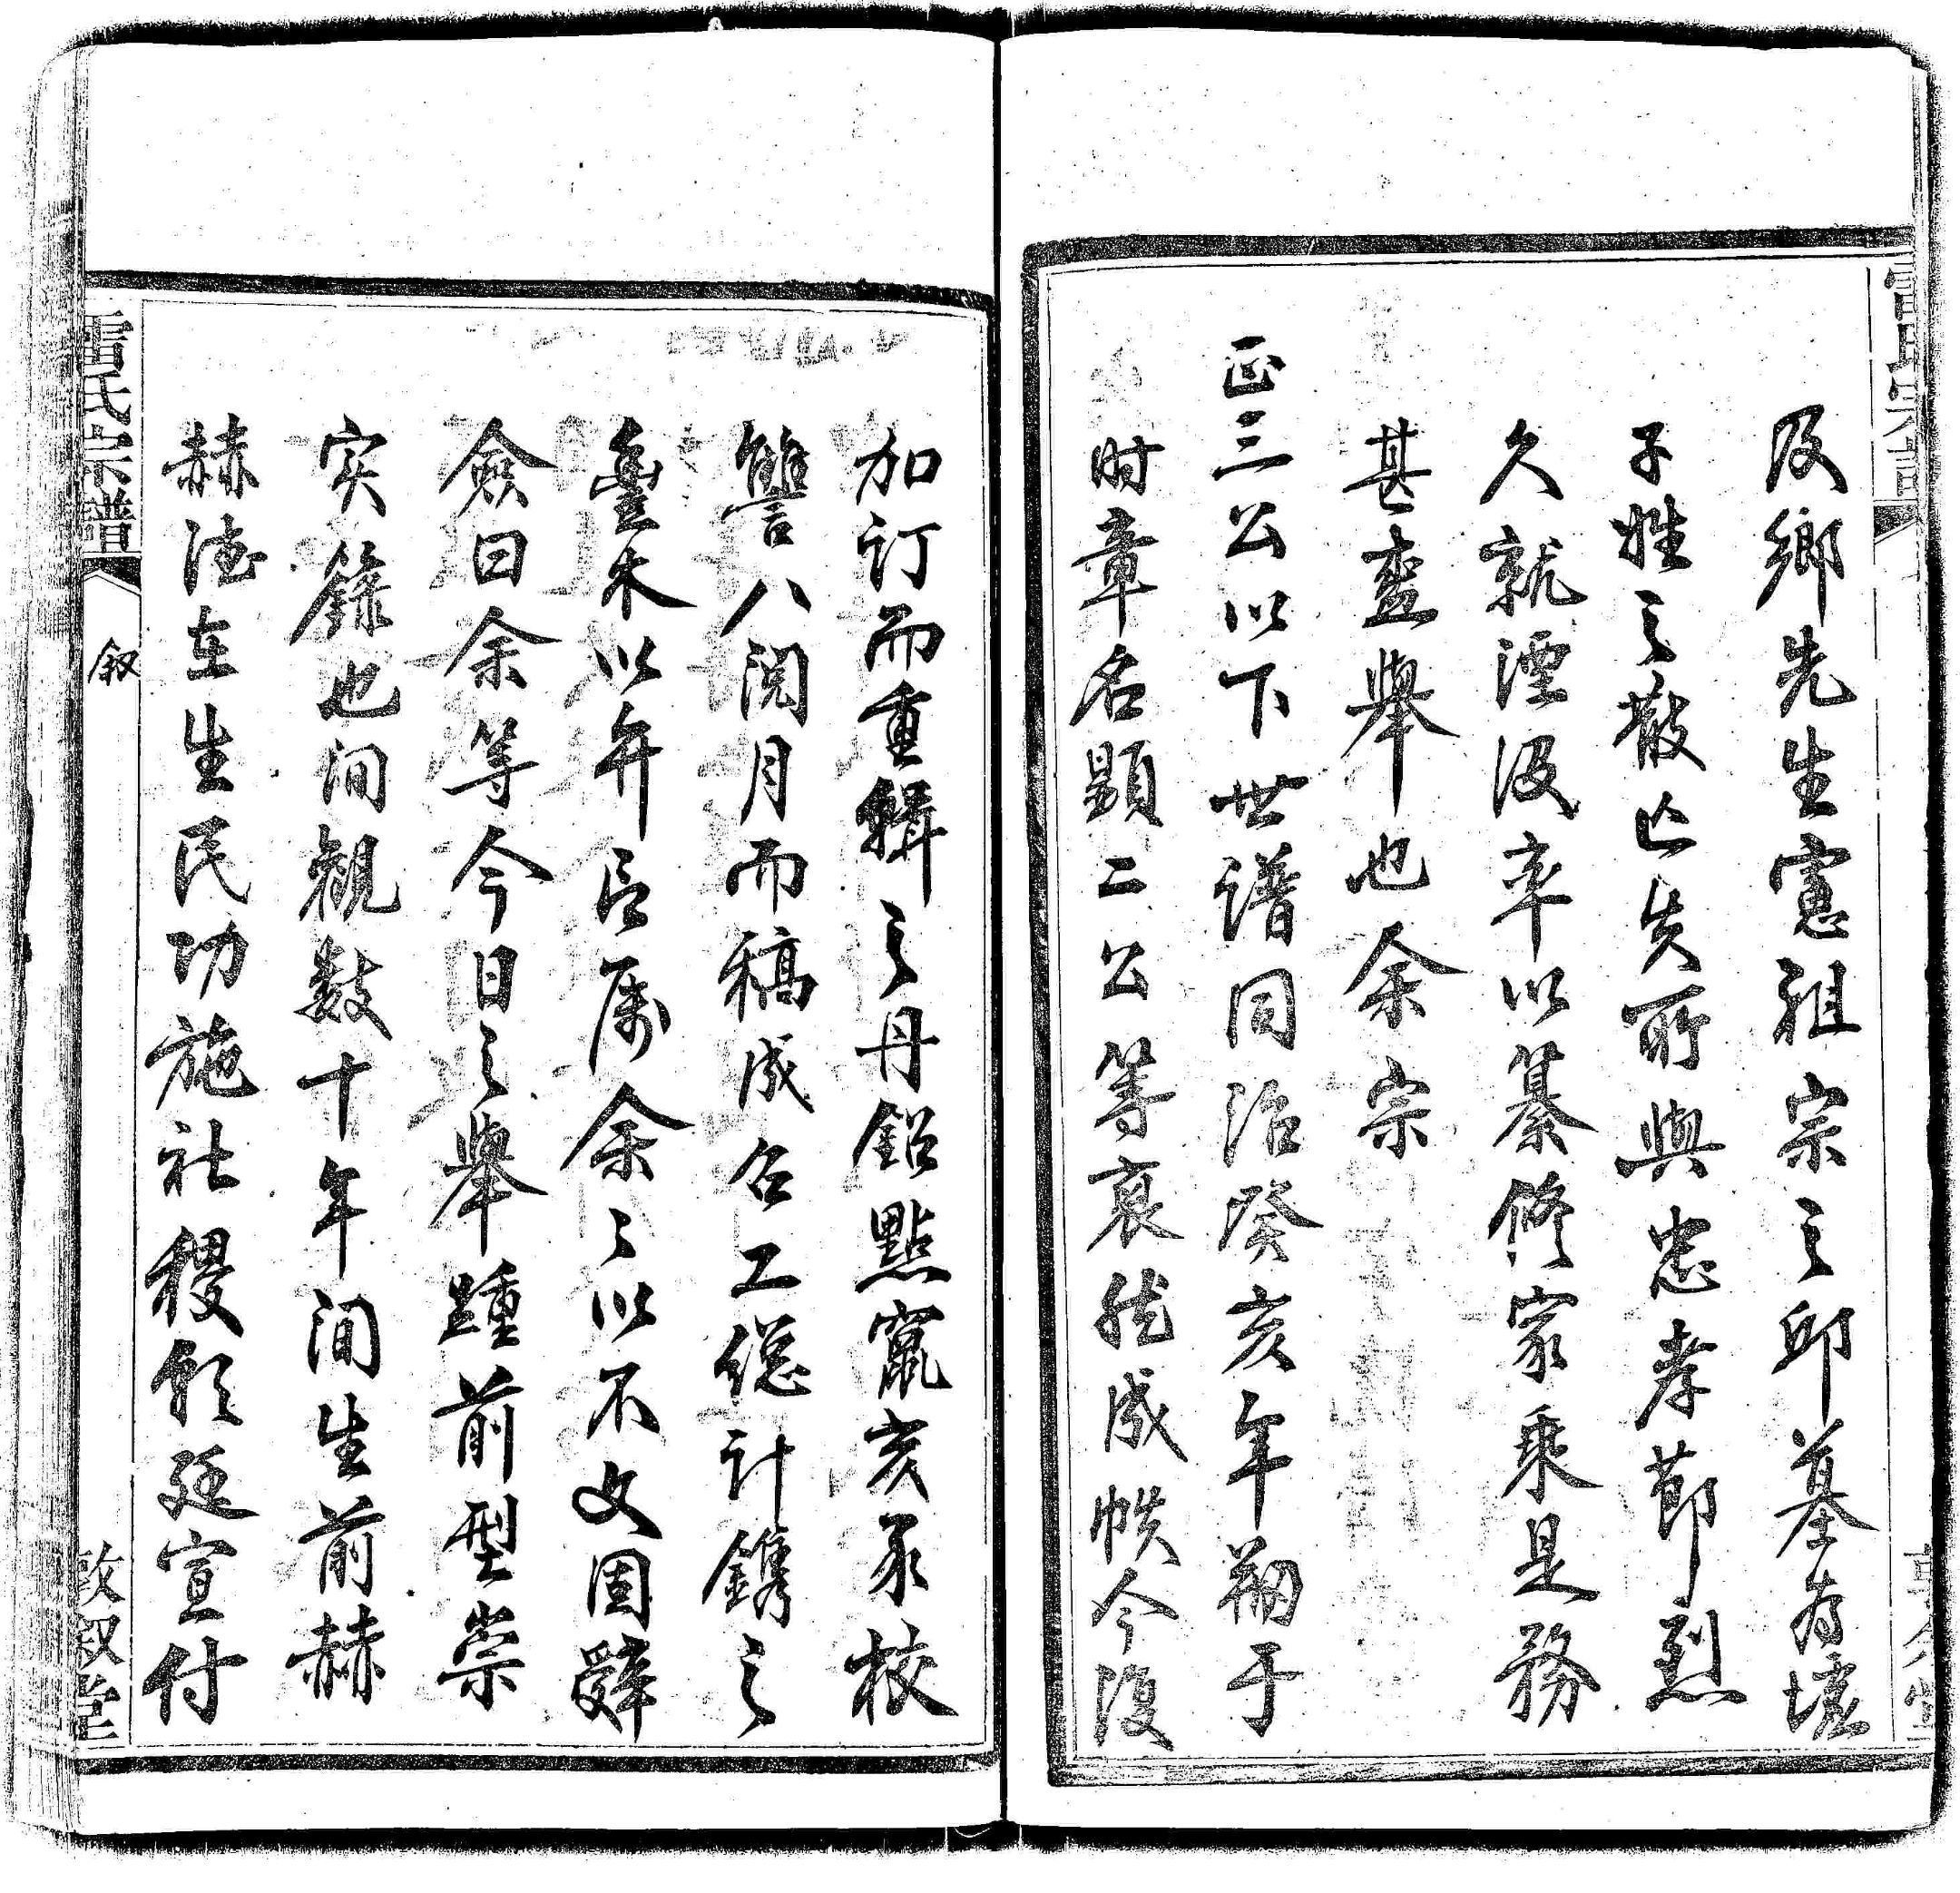 及鄉先生憲祖宗之邱墓为墟
子姓之散亡失所與忠孝節烈
久就湮没卒以纂修家乘是務
甚盛舉也余宗
正三公以下世谱同治癸亥年刱于
时章名顯二公等裒然成帙今復
加订而重輯之丹鉛點竄亥豕校
讐八閱月而稿成召工總计鐫之
棗木以弁言属余々以不文固辞
僉曰余等今日之舉踵前型崇
实錄也间觀数十年间生前赫
赫德在生民功施社稷領廷宣付
雷氏宗譜
叙
敦叙堂